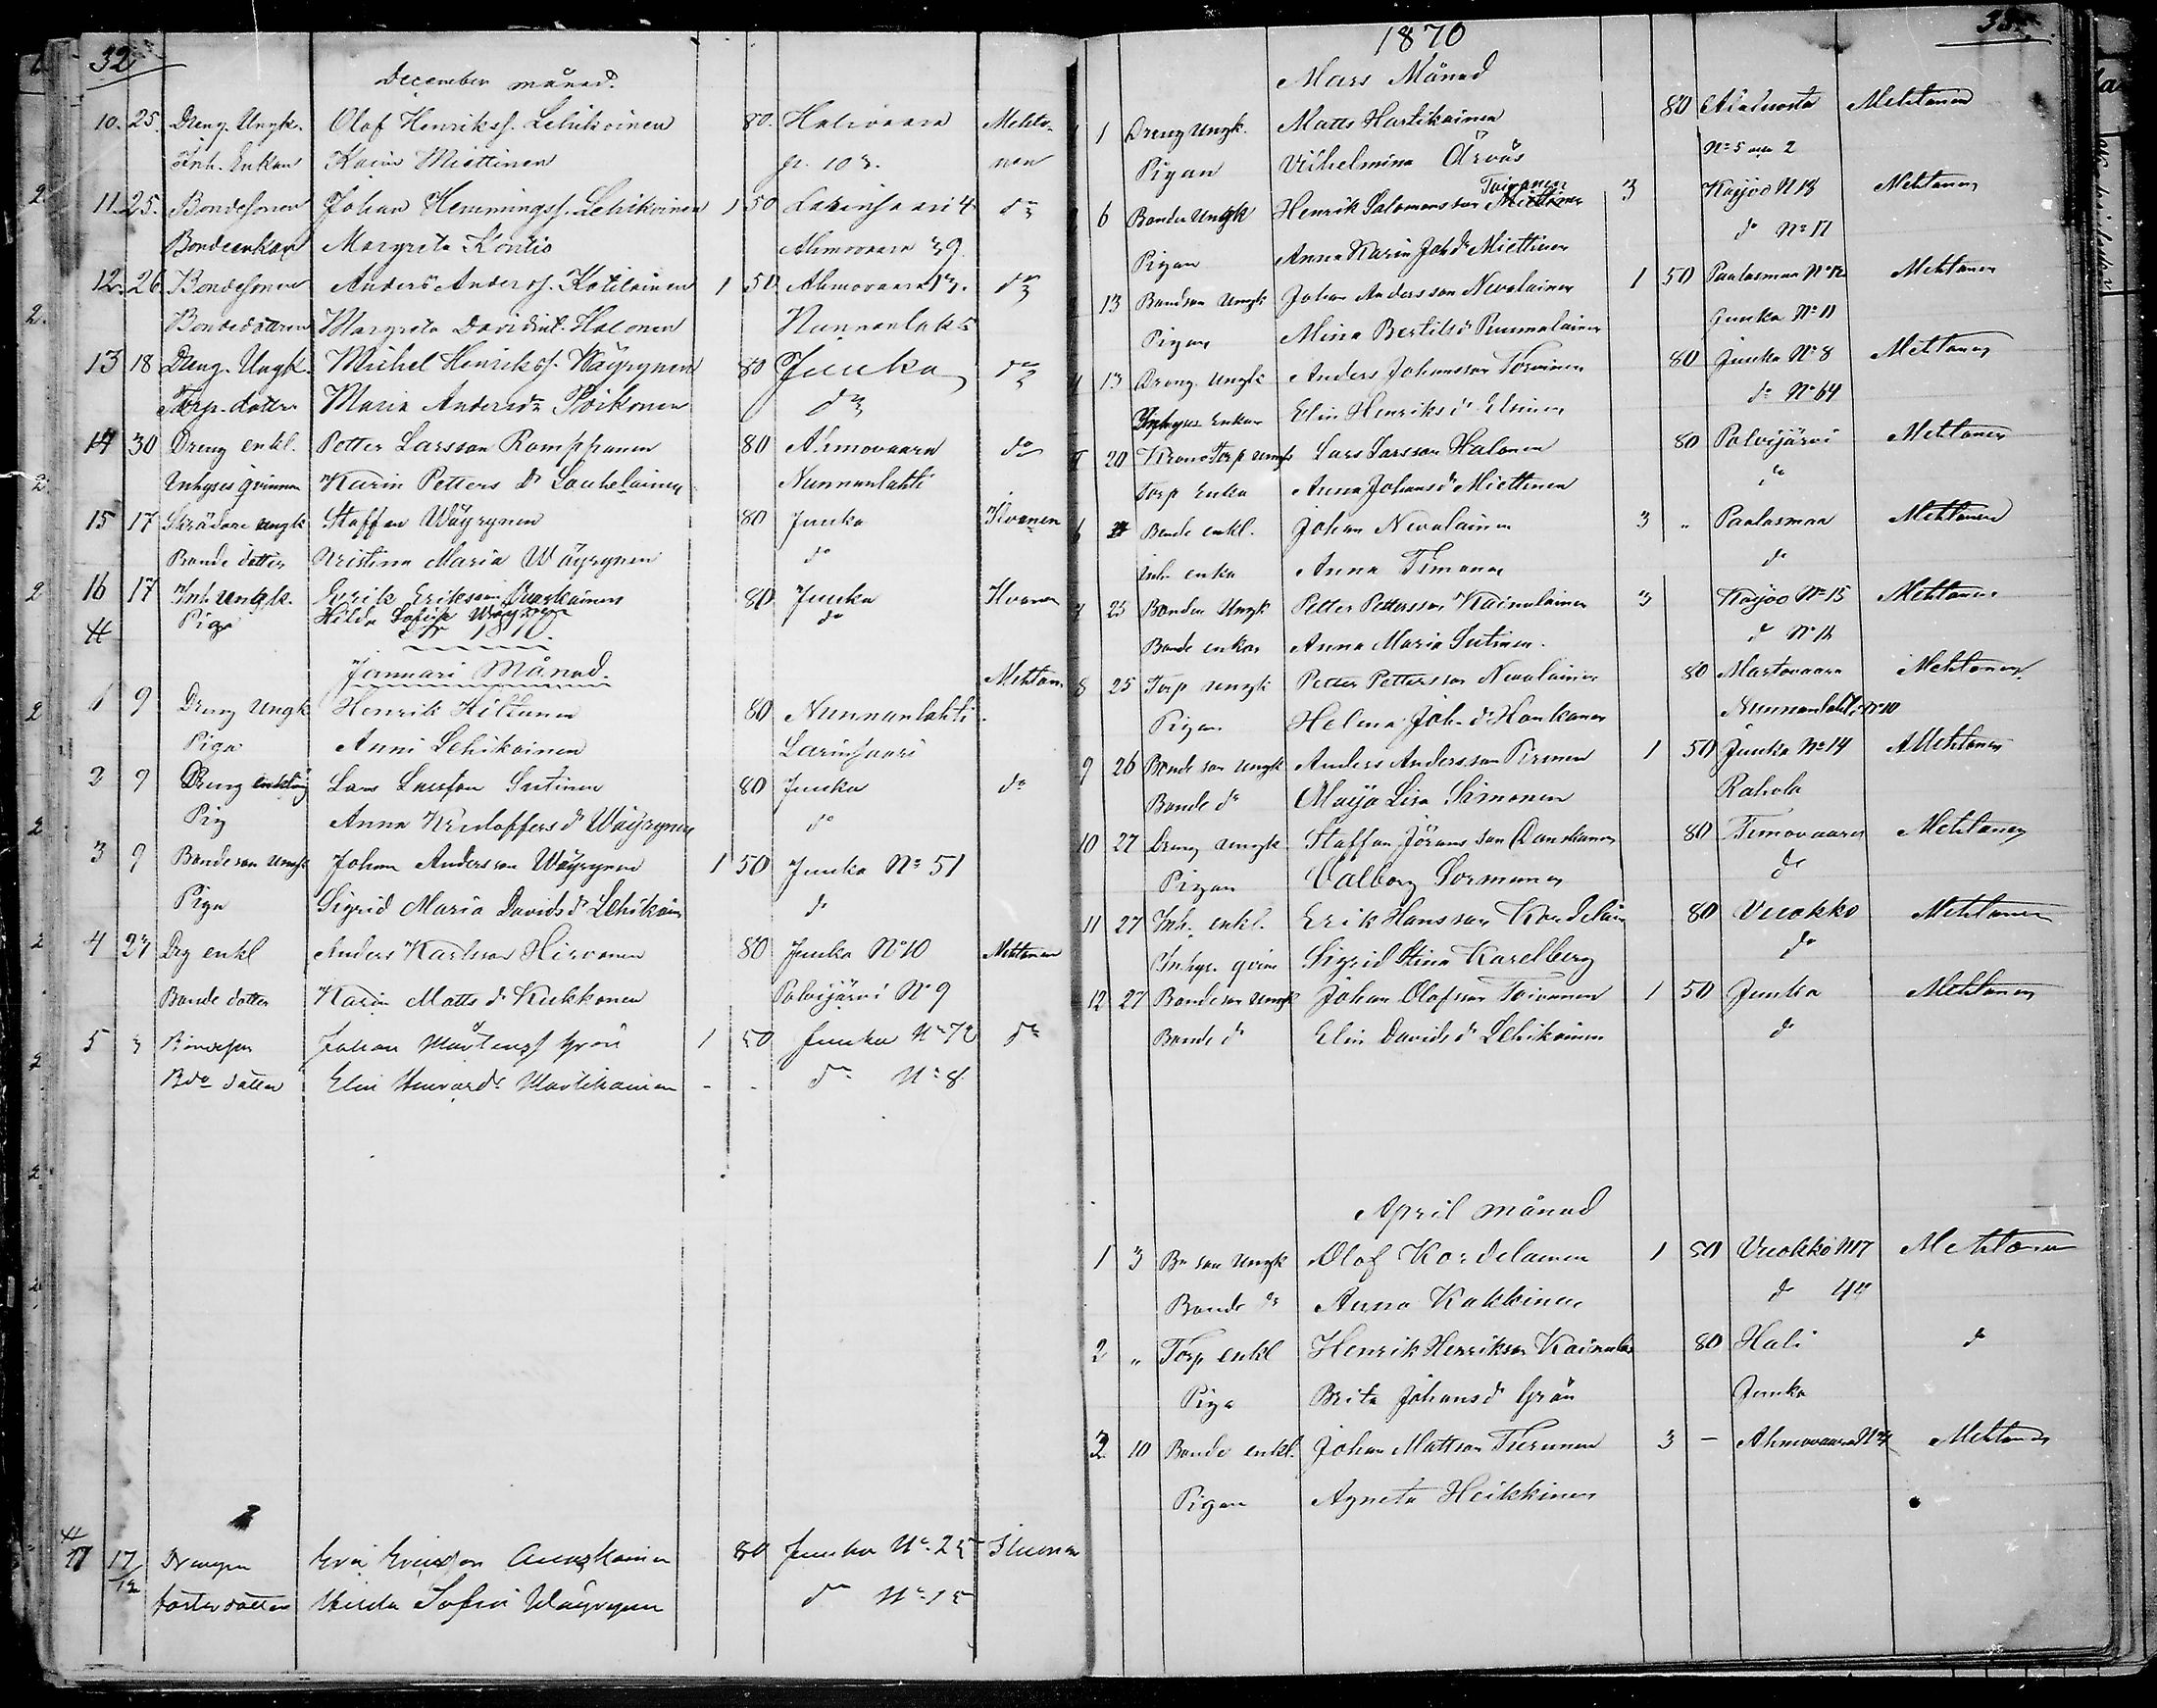 32
December månad.
10. 25. Dreng. Ungk. Olof Henrikss. Lehikoinen 80. Halivaara Mehto-
Inh. Enkan Karin Miettinen nen
11. 25. Bondesonen Johan Hemmingss. Lehikoinen 1 50 Larinsaari 4 do
Bondeenkan Margreta Kontio Ahmovaara 39
12. 26. Bondesonen Anders Anderss. Kotilainen 1 50 Ahmovaara 13. do
Bondedottren Margreta Davidsdt. Halonen Nunnanlaks
13 18 Dreng. Ungk. Michel Henrikss. Wäyrynen 80 Juuka do
Torp. dottren Maria Andersdr Poikonen do
14 30 Dreng enkl. Petter Larsson Romppanen 80 Ahmovaara do
Inhyses qvinnan Karin Petters dr Laukelainen Nunnanlahti
15 17 Skrädare ungk Staffan Wäyrynen 80 Juuka Ilvonen
Bonde dotter Kristina Maria Wäyrynen do
16 17 Inh. Ungk. Eerik Eriksson 80 Juuka Ilvonen
Piga Hilda Sofia Wäyrynen do
1870.
Januari Månad.
1 9 Dreng Ungk Henrik Hiltunen 80 Nunnanlahti Mehtonen
Piga Anni Lehikoinen Larinsaari
2 9 Dreng enkling Lars Larsson Sutinen 80 Juuka do
Pig Anna Kristoffers dr Wäyrynen do
3 9 Bondeson Ungk Johan Andersson Wäyrynen 1 50 Juuka No 51
Piga Sigrid Maria Davids dr Lehikoin do
4 27 Drg enkl Anders Karlsson Hirvonen 80 Juuka No 10 Mehtonen
Bonde dotter Karin Matts dr Kukkonen Polvijärvi No 9
5 3 Bondeson Johan Mårtenss Grön 1 50 Juuka No 72 do
Bde dotter Elin Martikainen - - do No 8
17 17/12 Drengen Eric Ericsson 80 Juuka No 25 Ilvonen
dotter Hilda Sofia Wäyrynen do No 15
1870
33
Mars Månad
1 1 Dreng Ungk. Matts Hartikainen 80 Alaluosta Mehtonen
Pigan Vilhelmina No 5 2
6 Bonden Ungk Henrik Salomonsson Toivanen 3 Kajoo N 18 Mehtonen
Pigan Anna Karin Joh dr Miettinen do No 17
13 Bondson Ungk Johan Andersson Nevalainen 1 50 Paalasmaa No 12 Mehtonen
Pigan Mina Bertilsdr Juuka No 11
4 13 Dreng. Ungk Anders Johansson Torvinen 80 Juuka No 8 Mehtonen
Inhyses Enkan Elin Henriks dr do No 64
20 Krono Torp ungk Lars Larsson Halonen 80 Polvijärvi Mehtonen
Torp Enka Anna Johansdr Miettinen do
6 Bonde enkl. Johan Nevalainen 3 " Paalasmaa Mehtonen
Inh enka Anna Timonen do
7 25 Bonden Ungk Petter Pettersson Kainulainen 3 Kajoo No 15 Mehtonen
Bonde enkan Anna Maria Sutinen. do No 16
8 25 Torp ungk Petter Pettersson Nevalainen 80 Martovaara Mehtonen
Pigan Helena Joh. dr Honkanen Nunnanlahti No 10
9 26 Bonde son ungk Anders Andersson Pironen 1 50 Juuka No 14 Mehtonen
Bonde dr Maija Lisa Simonen Rahola
10 27 Dreng ungk Staffan Jöransson 80 Timovaara Mehtonen
Pigan Valborg Sormunen do
11 27 Inh. enkl. Erik Hansson Kordelain 80 Vuokko Mehtonen
Inhys. qvin Sigrid Stina Karelberg do
12 27 Bondeson ungk Johan Olofsson Toivanen 1 50 Juuka Mehtonen
Bonde dr Elin Davids dr Lehikoinen do
April månad
1 3 Bo son Ungk Olof Kordelainen 1 50 Vuokko N 17 Mehtonen
Bonde dr Anna Kakkinen do 40
2 " Torp enkl Henrik Henriksson Kainulai 80 Hali do
Piga Brita Johansdr Grön Juuka
3 10 Bonde enkl. Johan Mattson Turunen 3 — Ahmovaara No 4 Mehtonen
Pigan Agneta Heikkinen